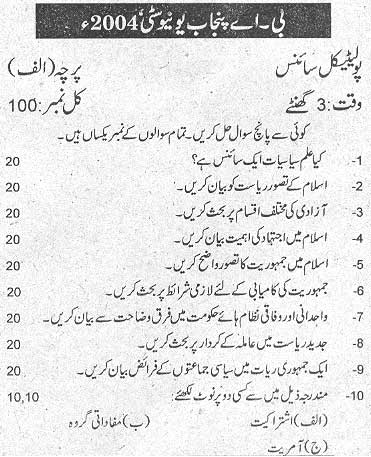 بی۔اے پنجاب یونیورسٹی 2004ء
پولیٹیکل سائنس پرچہ (الف)
وقت: 3 گھنٹے کل نمبر: 100
کوئی سے پانچ سوال حل کریں۔ تمام سوالوں کے نمبر یکساں ہیں۔
1- کیا علم سیاسیات ایک سائنس ہے؟ 20
2- اسلام کے تصور ریاست کو بیان کریں۔ 20
3- آزادی کی مختلف اقسام پر بحث کریں۔ 20
4- اسلام میں اجتہاد کی اہمیت بیان کریں۔ 20
5- اسلام میں جمہوریت کا تصور واضح کریں۔ 20
6- جمہوریت کی کامیابی کے لئے لازمی شرائط پر بحث کریں۔ 20
7- واحدانی اور وفاقی نظام ہائے حکومت میں فرق وضاحت سے بیان کریں۔ 20
8- جدید ریاست میں عاملہ کے کردار پر بحث کریں۔ 20
9- ایک جمہوری ریاست میں سیاسی جماعتوں کے فرائض بیان کریں۔ 20
10- مندرجہ ذیل میں سے کسی دو پر نوٹ لکھئے: 10,10
(الف) اشتراکیت (ب) مفاداتی گروہ
(ج) آمریت